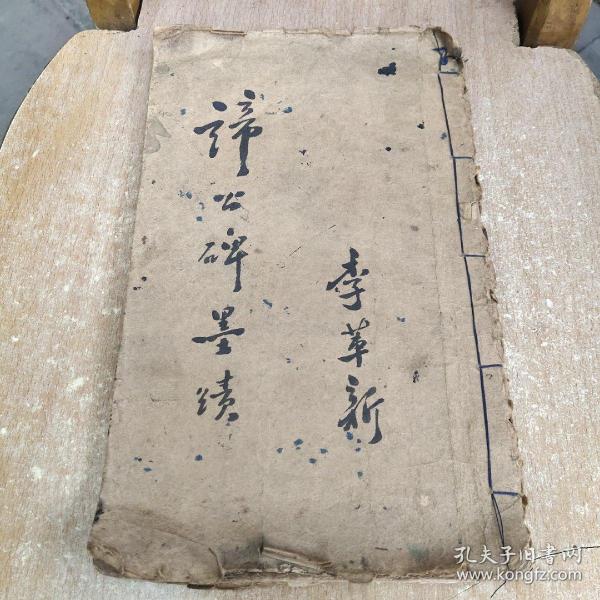 李革新
諦公碑墨蹟
孔夫子旧书网
www.kongfz.com